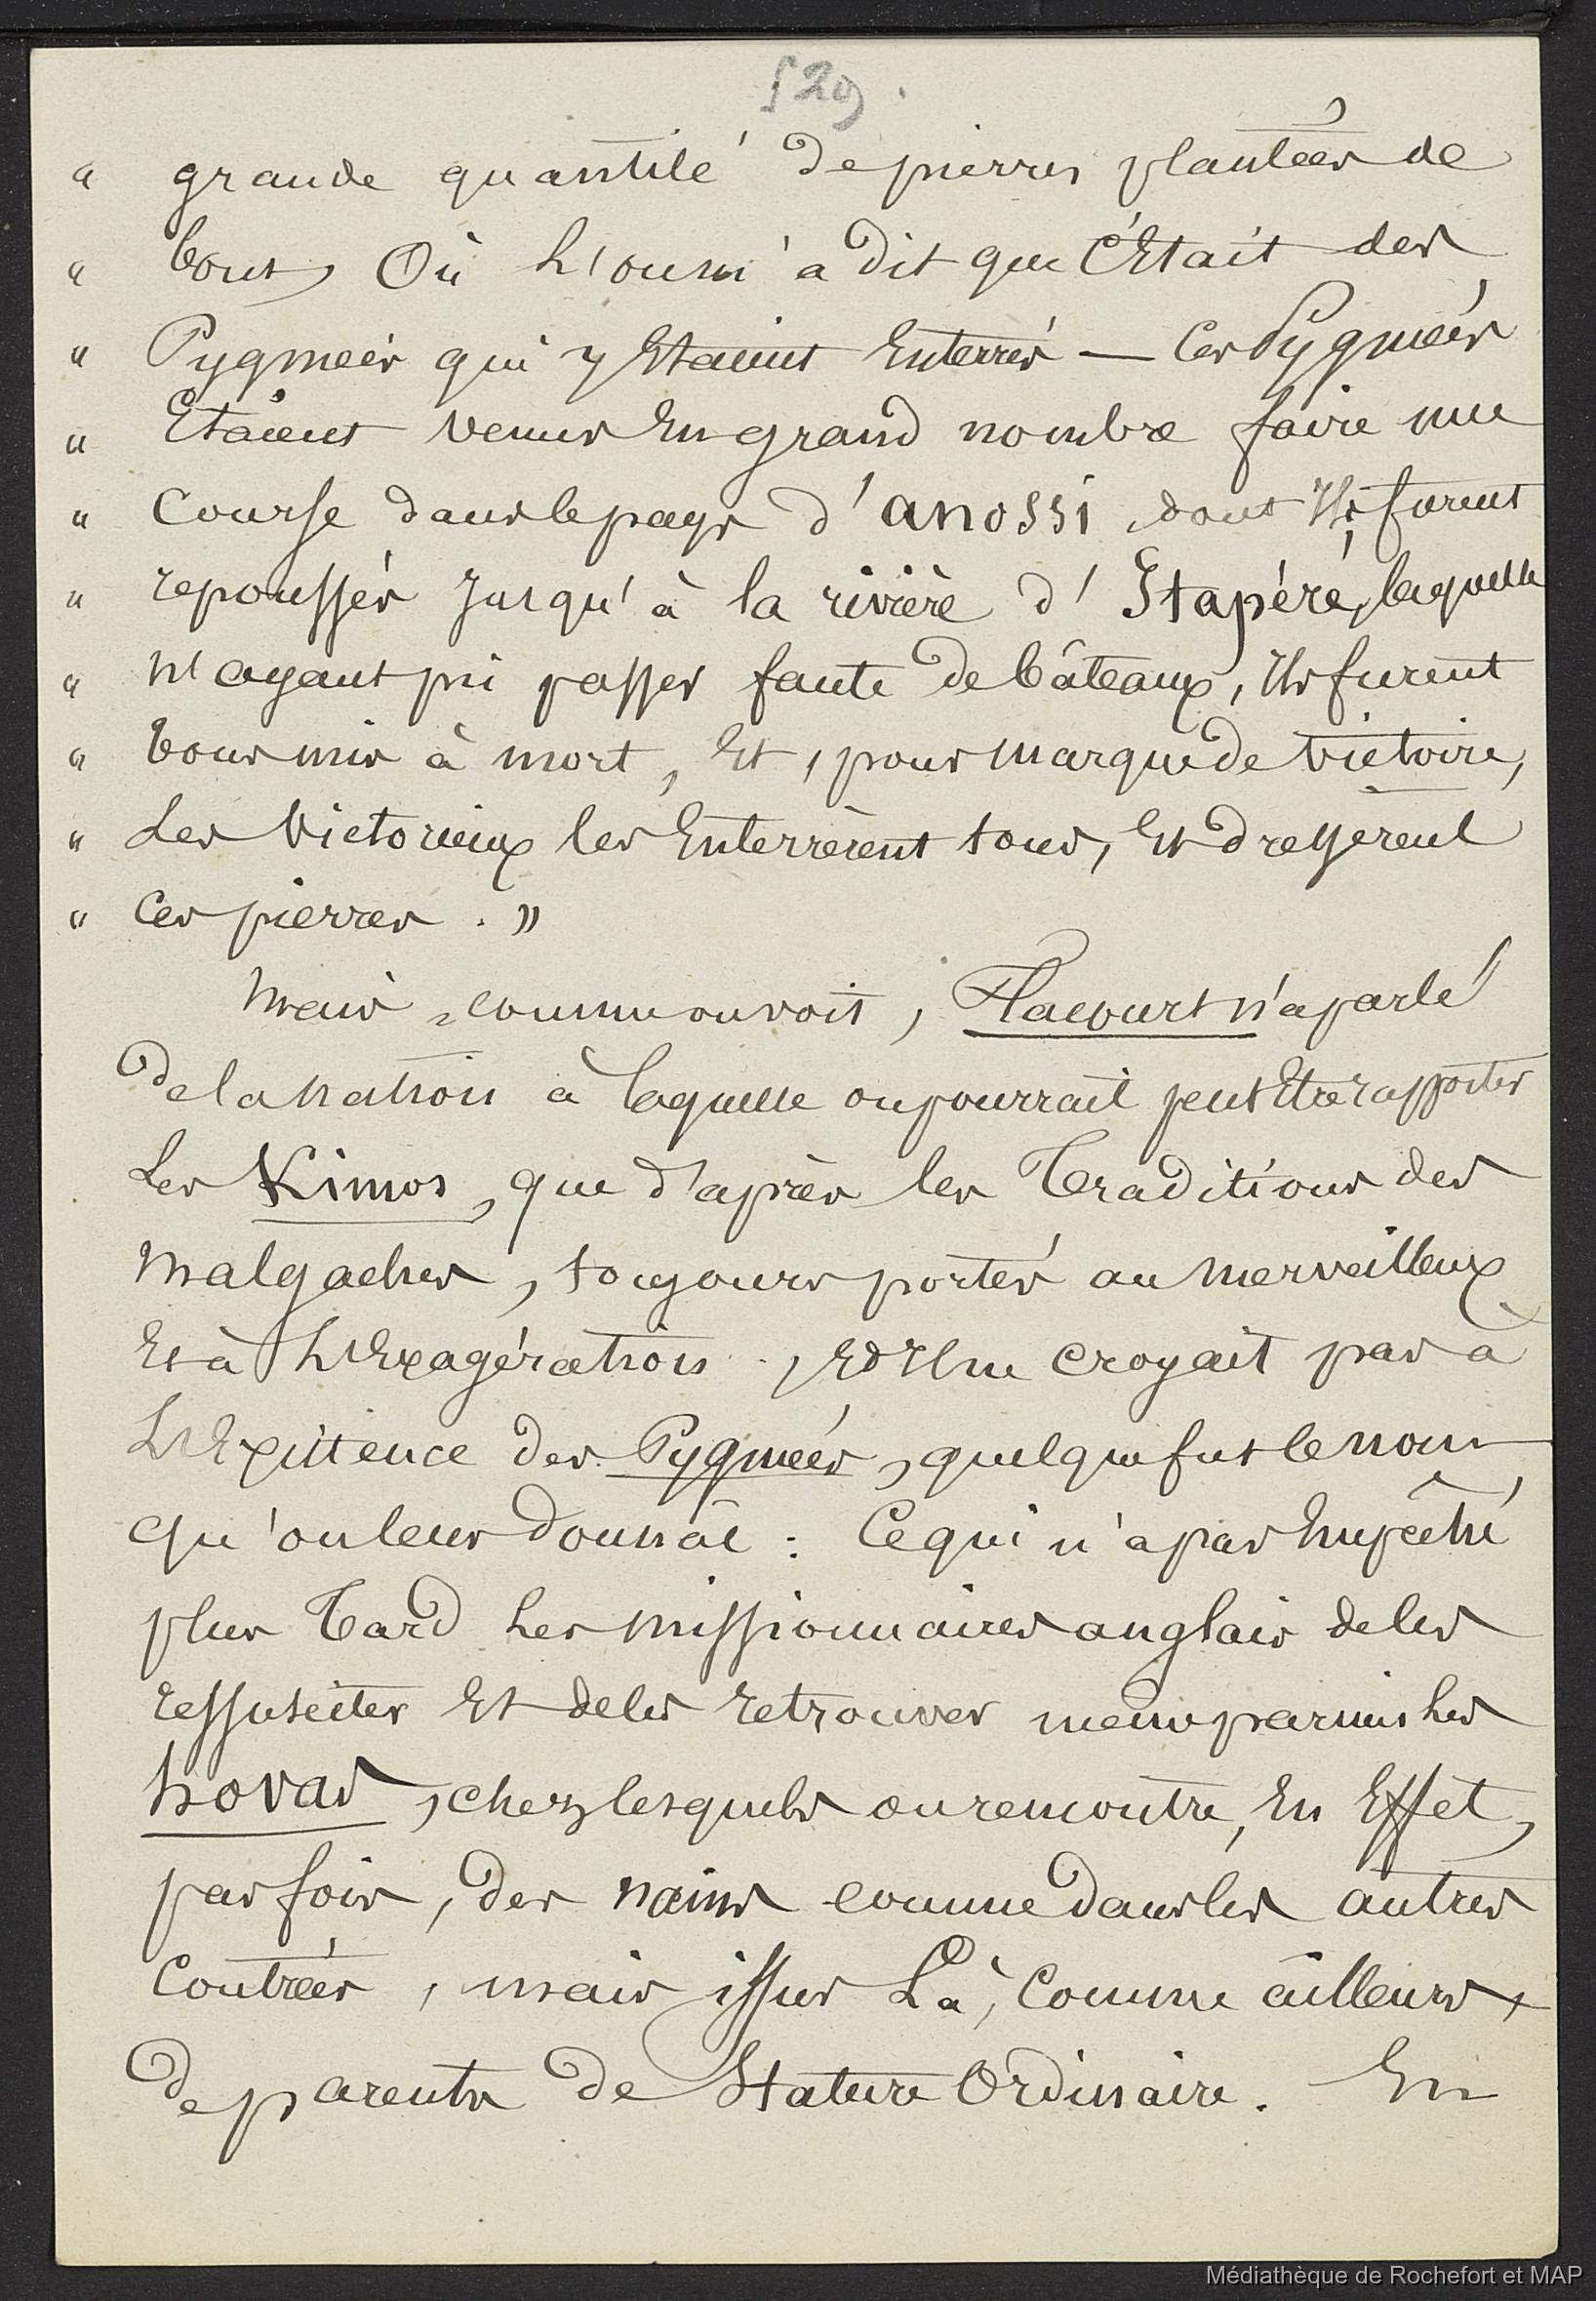 529.
" grande quantité de pierres plantées de
" bout, Où L'on m'a dit que C'Etait des
" Pygmées qui y Etaient Enterrés — Ces Pygmées
" Etaient venus En grand nombre faire une
" Course dans le pays d'anossi, dont Ils furent
" repoussés Jusqu'à la rivière d'Itapéré, laquelle
" N'ayant pu passer faute de bâteaux, Ils furent
" tous mis à mort, Et, pour marque de victoire,
" Les Victorieux les Enterrèrent tous, Et dresserent
" Ces pierres. "
Mais, comme on voit, Flacourt n'a parlé
De la Nation à laquelle on pourrait peut Etre rapporter
Les Kimos, que d'après les Traditions des
Malgaches, toujours portés au Merveilleux
Et à L'Exagération, Et Il ne Croyait pas à
L'Existence des Pygmées, quelque fut le nom
qu'on leur Donnât : Ce qui n'a pas Empêché
plus Tard Les Missionnaires anglais de les
ressusciter Et de les retrouver même parmis Les
hovas, chez lesquels on rencontre, En Effet,
parfois, des nains comme dans les autres
Contrées, mais issus Là, Comme ailleurs,
De parents de Stature Ordinaire. En
Médiathèque de Rochefort et MAP